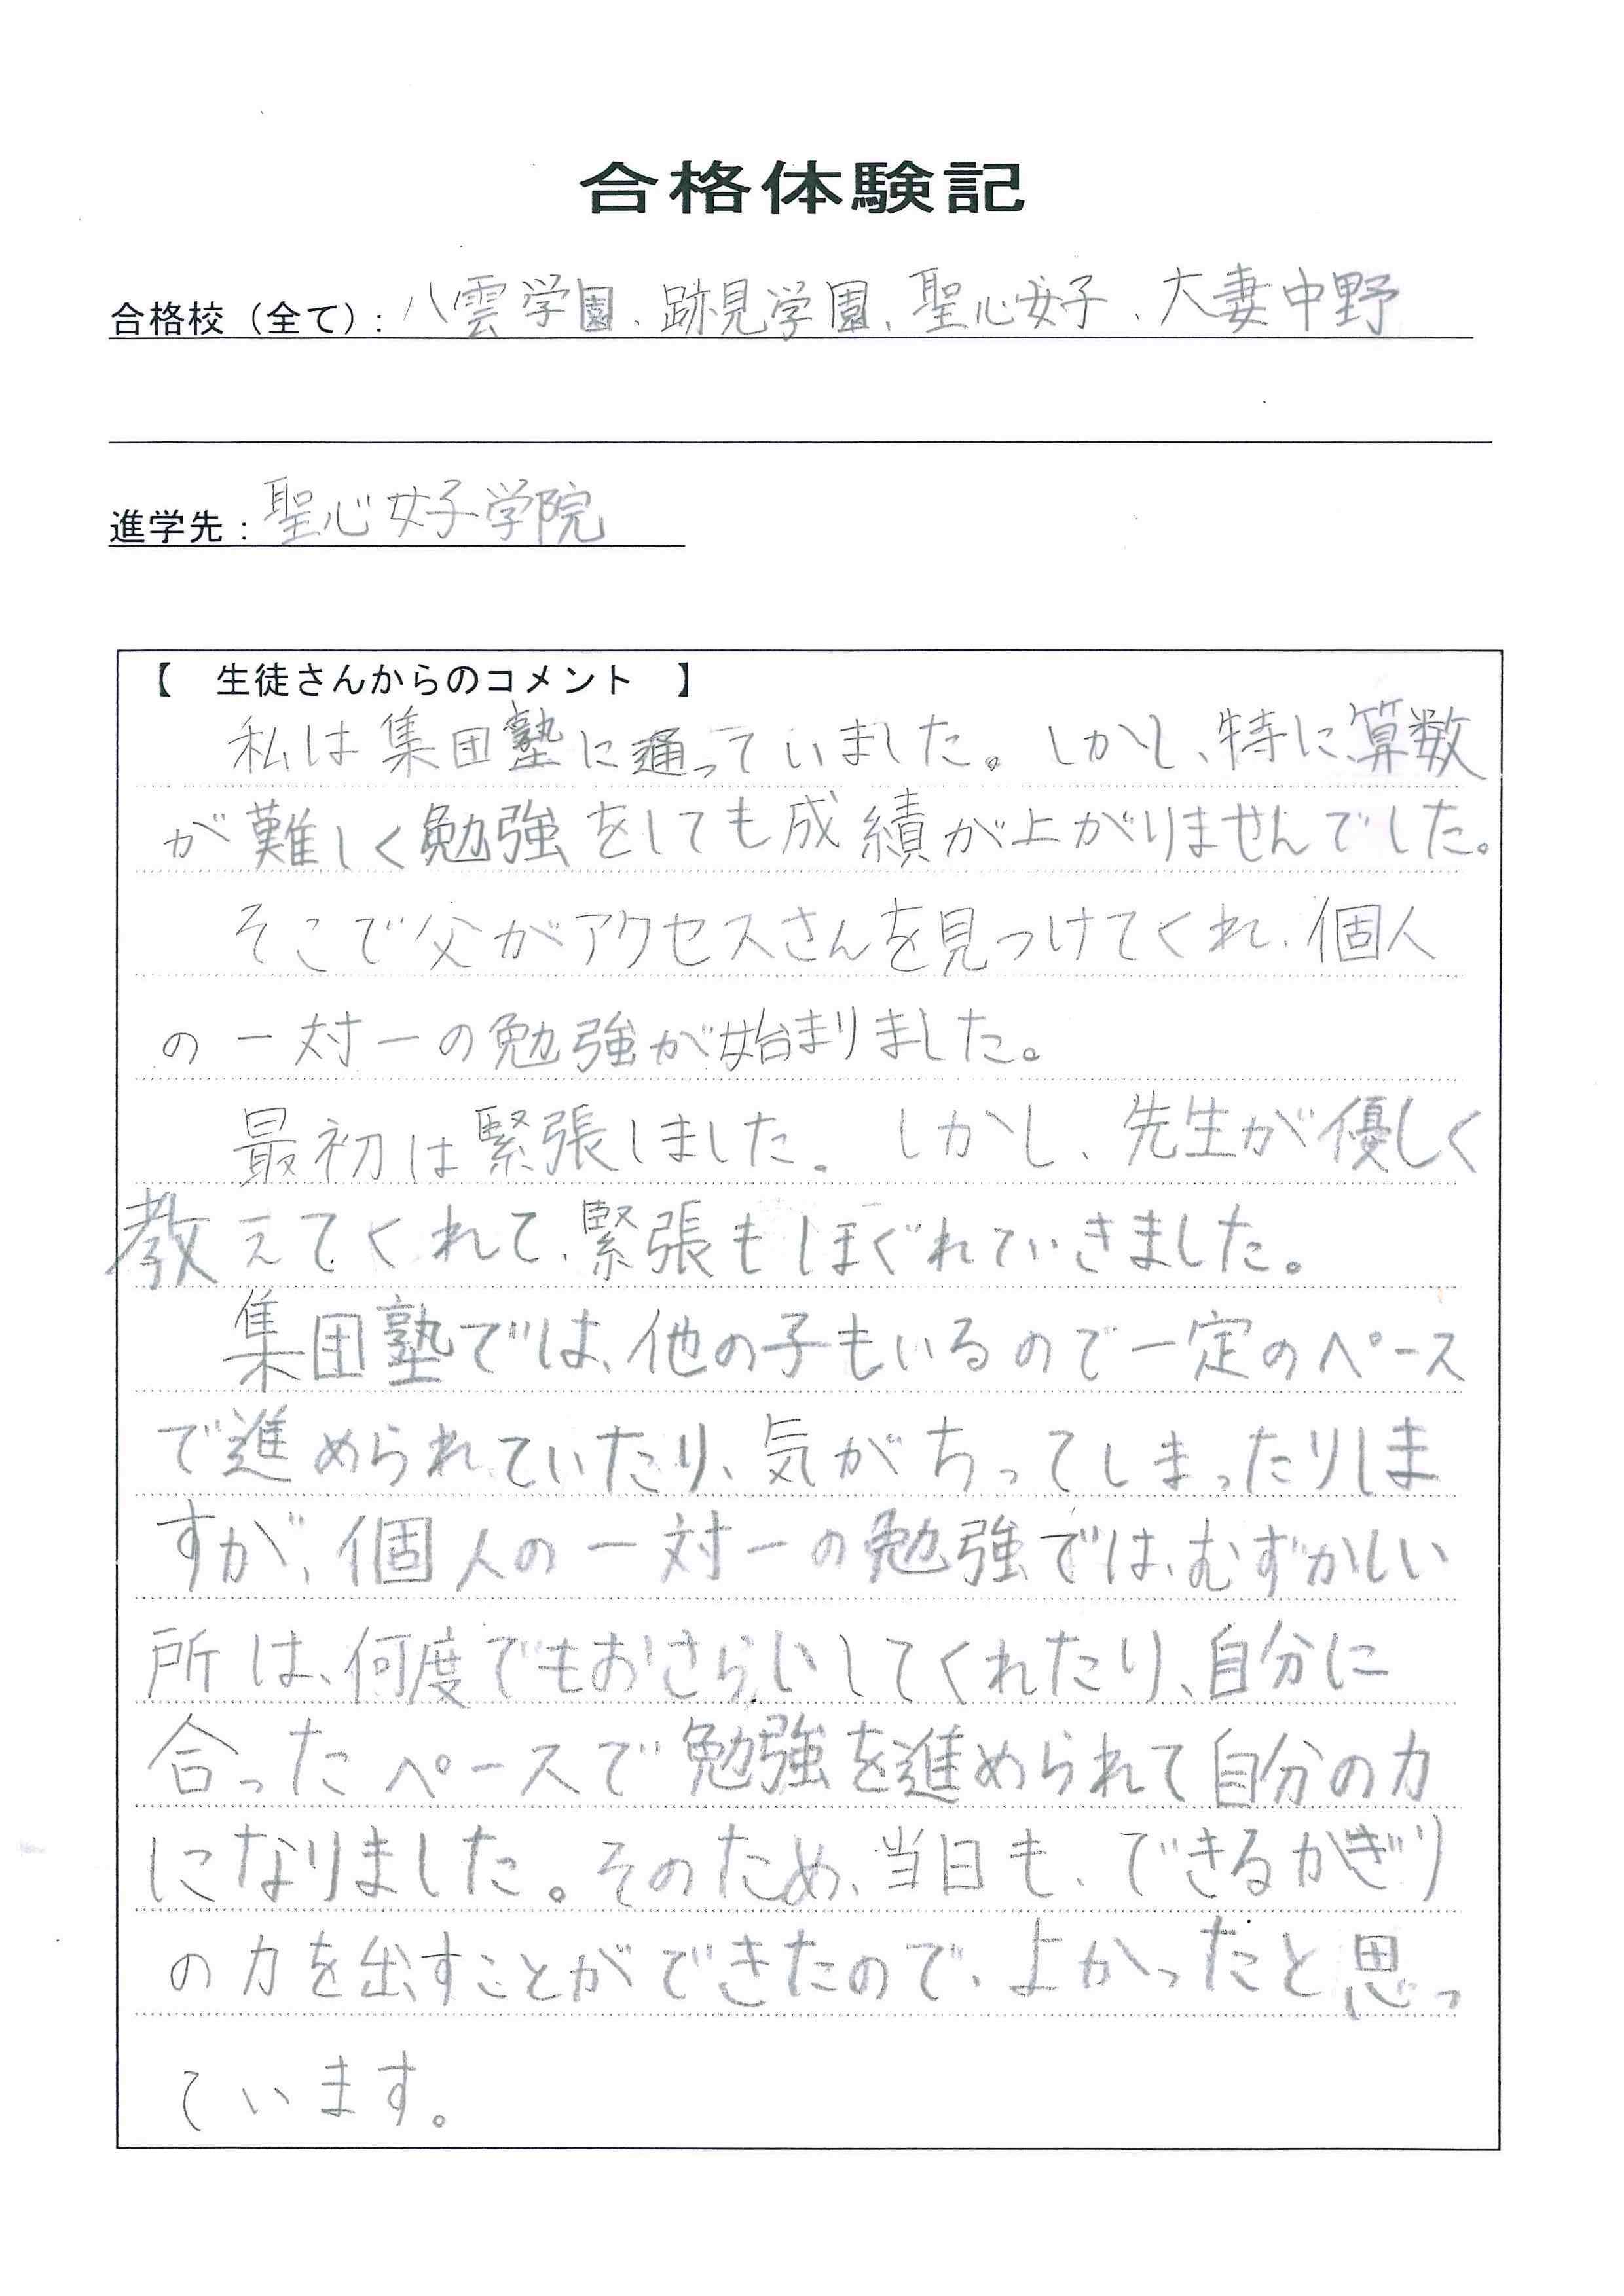 合格体験記
合格校（全て）: 八雲学園、跡見学園、聖心女子、大妻中野
進学先: 聖心女子学院
【 生徒さんからのコメント 】
私は集団塾に通っていました。しかし、特に、算数
が難しく勉強をしても成績が上がりませんでした。
そこで父がアクセスさんを見つけてくれ、個人
の一対一の勉強が始まりました。
最初は緊張しました。しかし、先生が優しく
教えてくれて、緊張もほぐれていきました。
集団塾では、他の子もいるので一定のペース
で進められていたり、気がちってしまったりしま
すが、個人の一対一の勉強では、むずかしい
所は、何度でもおさらいしてくれたり、自分に
合ったペースで勉強を進められて自分の力
になりました。そのため、当日も、できるかぎり
の力を出すことができたので、よかったと思っ
ています。